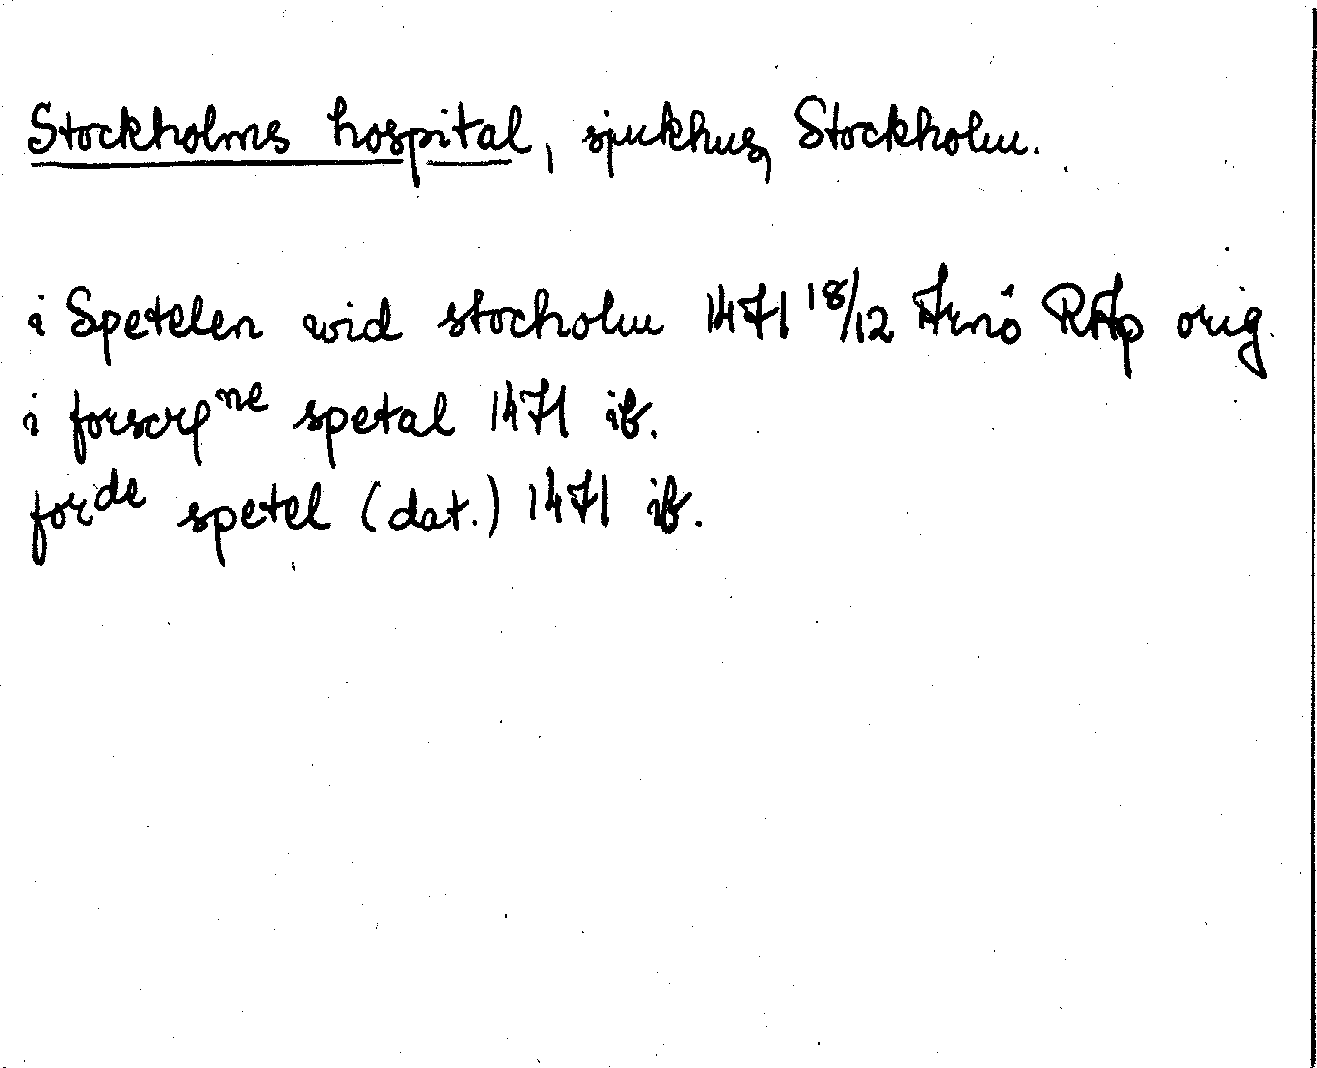 Stockholms hospital, sjukhus, Stockholm.
i Spetelen wid stocholm 1471 18/12 Arnö RAp orig.
i forscrpne spetal 1471 ib.
forde spetel (dat.) 1471 ib.